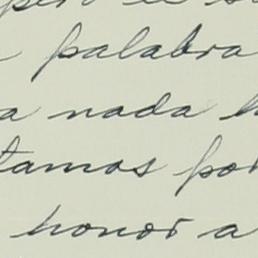 palabra
a nada
tamos por
honor a